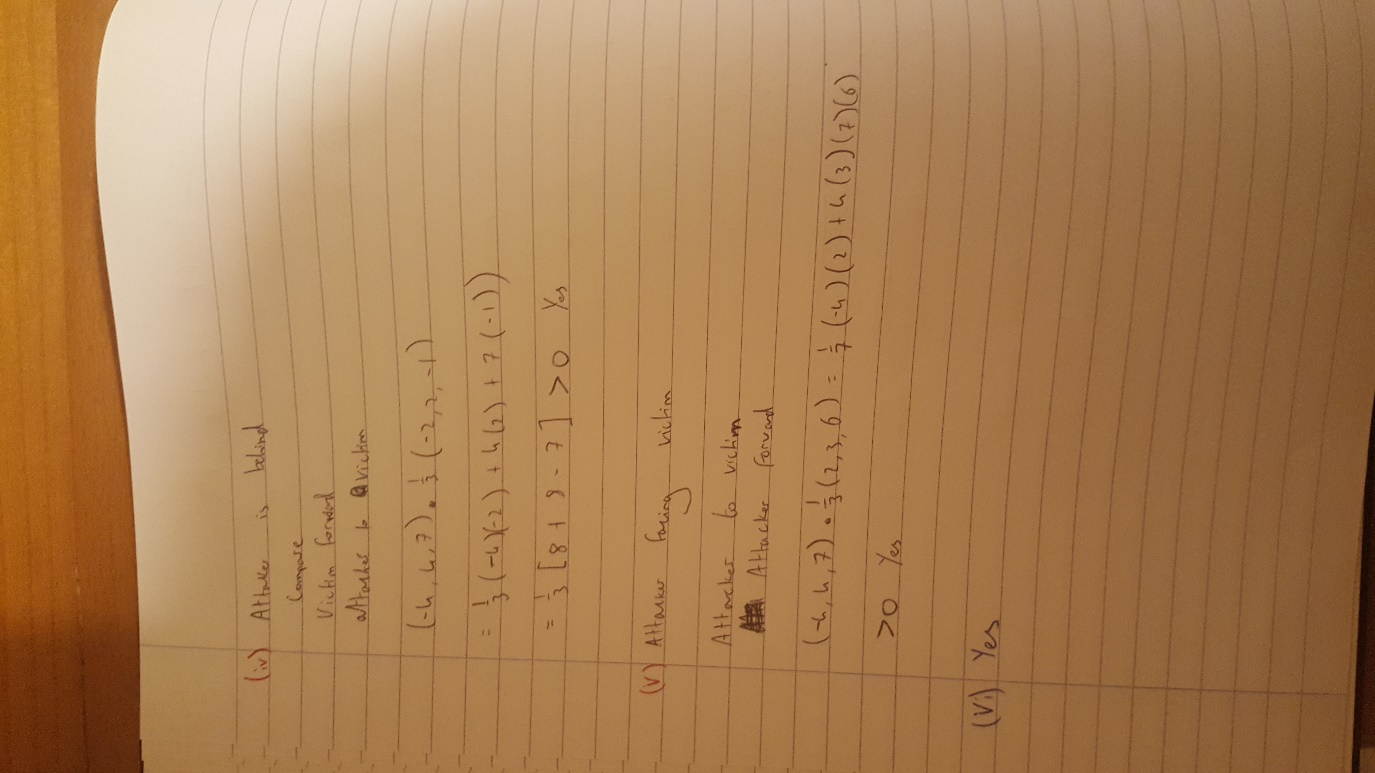 (iv) Attacker is behind
Compare
Victim forward
attacker to victim
(-4, 4, 7) • 1/3 (-2, 2, -1)
= 1/3 (-4)(-2) + 4(2) + 7(-1))
= 1/3 [8 + 9 - 7] > 0 Yes
(v) Attacker facing victim
Attacker to victim
Attacker forward
(-4, 4, 7) • 1/3 (2, 3, 6) = 1/7 (-4)(2) + 4(3)(7)(6)
> 0 Yes
(vi) Yes